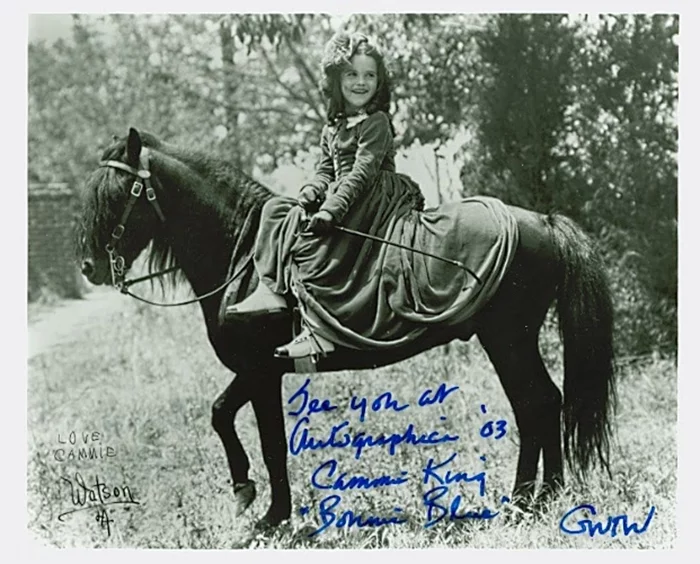 LOVE
CAMMIE
Watson
See you at
Autographica '03
Cammie King
"Bonnie Blue"
GWTW